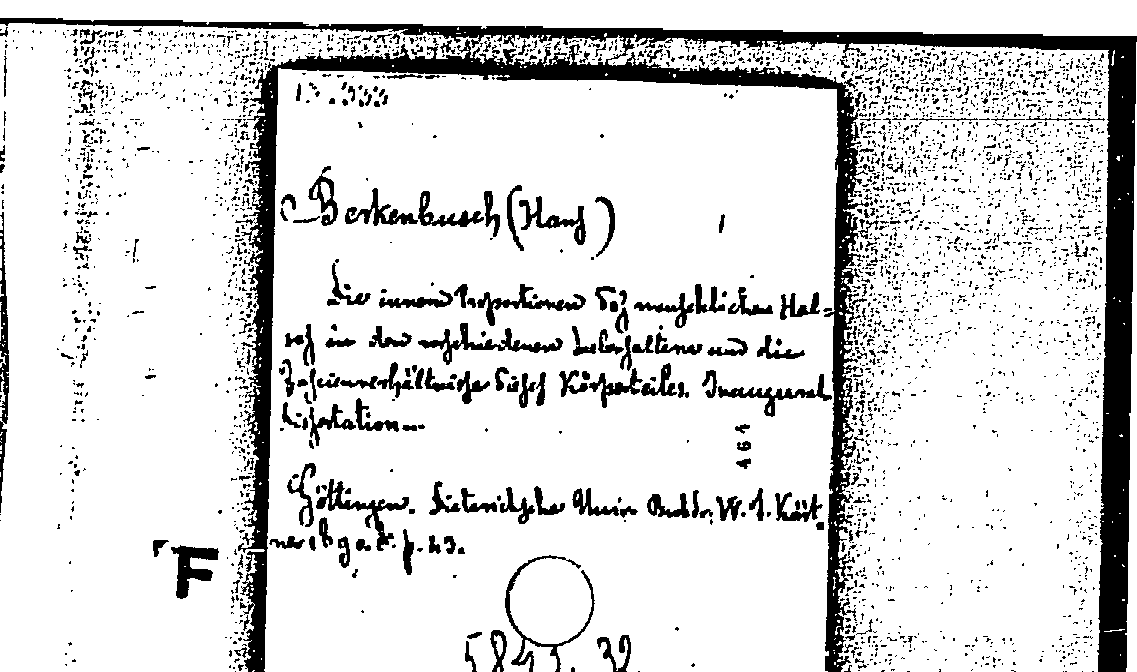 Berkenbusch (Hans)
Die innern Proportionen des menschlichen Hal=
ses in den verschiedenen und die
Faszienverhältnisse dieses Körperteiles. Inaugural
dissertation
464
Göttingen. Dieterichsche Univ. Buchdr. W. F. Käst
ner p. 43.
F
5843. 32